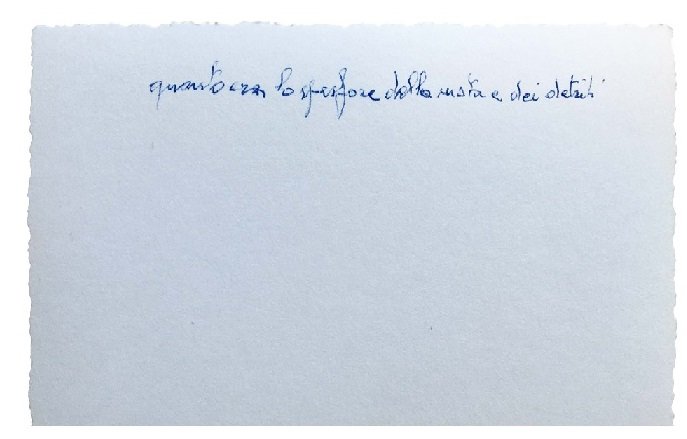 quanto era lo spessore della mota e dei detriti